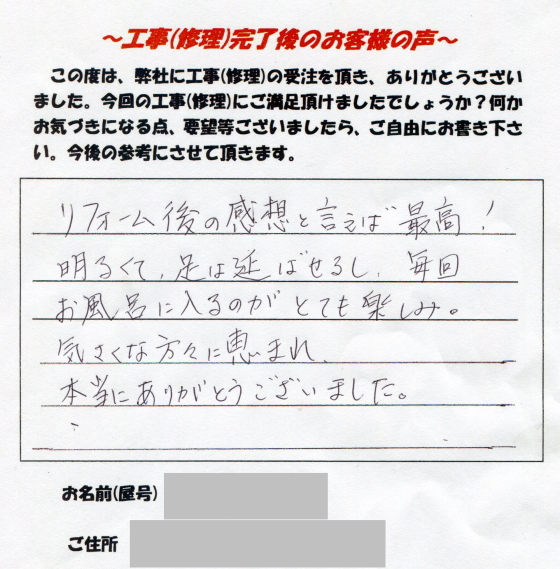 ～工事(修理)完了後のお客様の声～
この度は、弊社に工事(修理)の受注を頂き、ありがとうござい
ました。今回の工事(修理)にご満足頂けましたでしょうか？何か
お気づきになる点、要望等ございましたら、ご自由にお書き下さ
い。今後の参考にさせて頂きます。
リフォーム後の感想と言えば最高！
明るくて、足は延ばせるし、毎回
お風呂に入るのがとても楽しみ。
気さくな方々に恵まれ、
本当にありがとうございました。
お名前(屋号)
ご住所